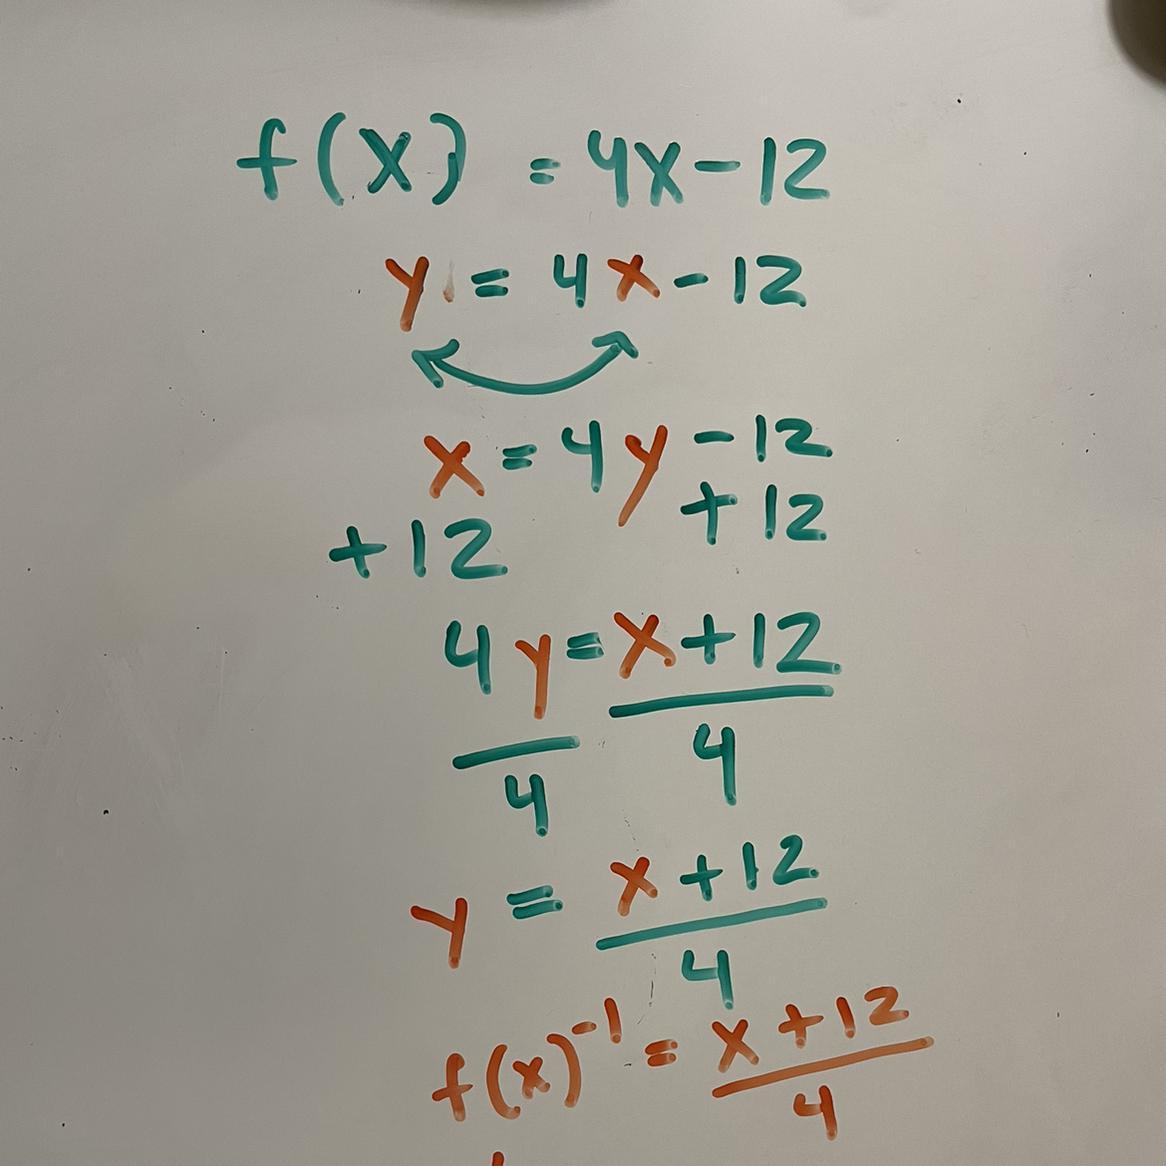 f(x) = 4x - 12
y = 4x - 12
x = 4y - 12
+ 12 + 12
4y = x + 12
4 4
y = x + 12
4
f(x)⁻¹ = x + 12
4